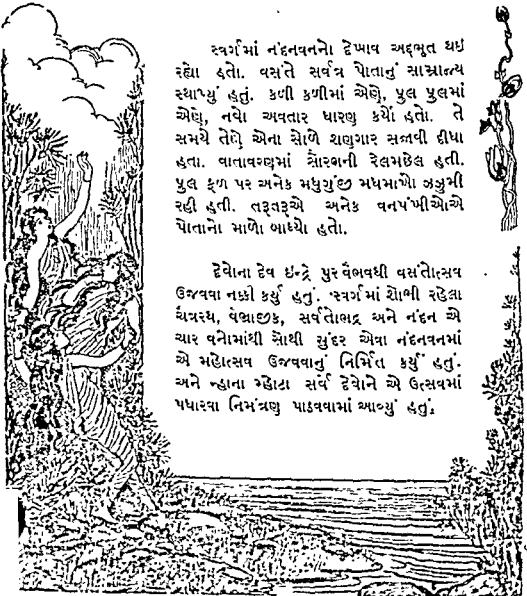 સ્વર્ગમાં નંદનવનનો દેખાવ અદ્ભૂત થઇ
રહ્યો હતો. વસંતે સર્વત્ર પોતાનું સામ્રાજ્ય
સ્થાપ્યું હતું. કળી કળીમાં એણે, પુલ પુલમાં
એણે, નવો અવતાર ધારણ કર્યો હતો. તે
સમયે તેણે એના સોળે શણગાર સજાવી દીધા
હતા. વાતાવરણમાં સૌરભની રેલમછેલ હતી.
પુલ ફળ પર અનેક મધુગુંજી મધમાખો ઝઝુમી
રહી હતી. તરૂતરૂએ અનેક વનપંખીઓએ
પોતાનો માળો બાંધ્યો હતો.
દેવોના દેવ ઇન્દ્રે પુર વૈભવથી વસંતોત્સવ
ઉજવવા નક્કી કર્યું હતું. સ્વર્ગમાં શોભી રહેલા
ચૈત્રરથ, વૈભ્રાજીક, સર્વતોભદ્ર અને નંદન એ
ચાર વનોમાંથી સૌથી સુંદર એવા નંદનવનમાં
એ મહોત્સવ ઉજવવાનું નિર્મિત કર્યું હતું.
અને ન્હાના મ્હોટા સર્વ દેવોને એ ઉત્સવમાં
પધારવા નિમંત્રણ પાઠવવામાં આવ્યું હતું.